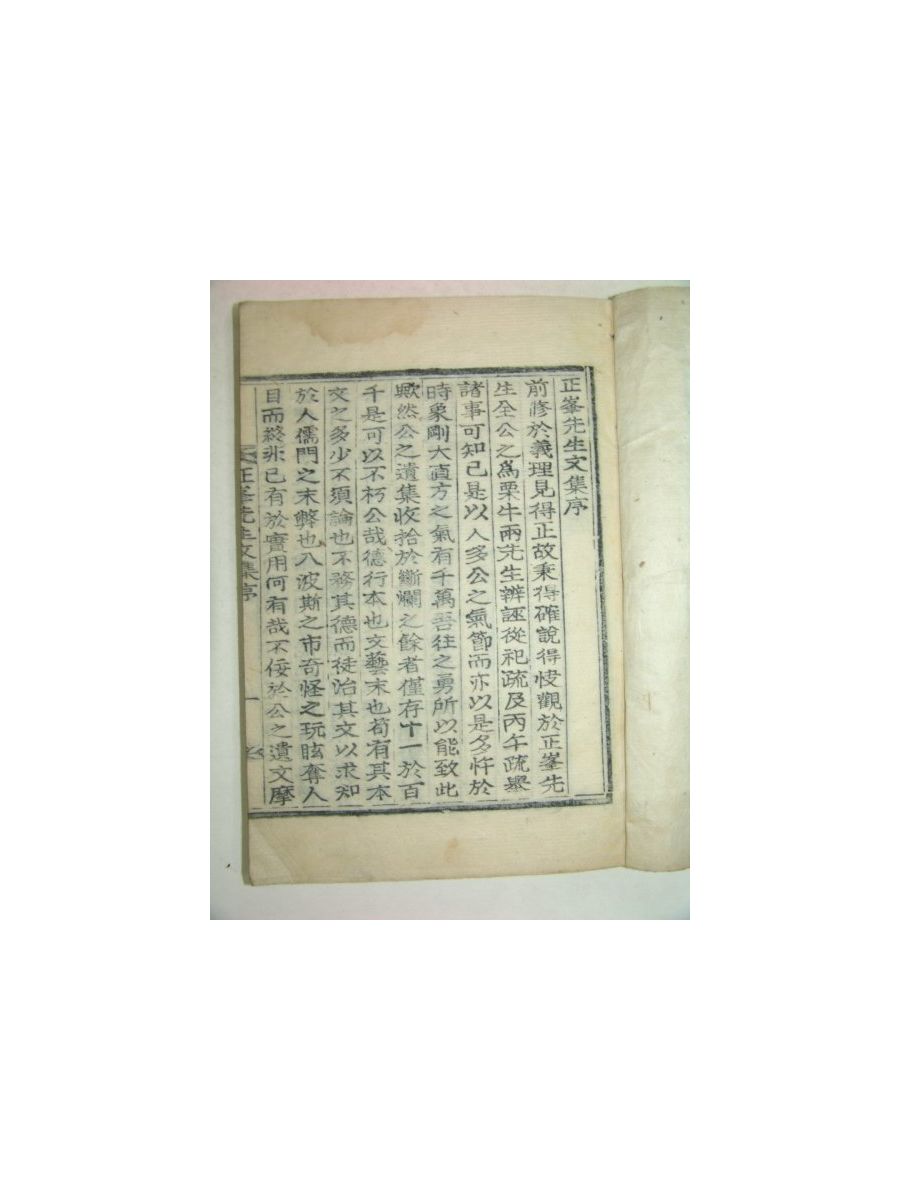 正峯先生文集序
前修於義理見得正故秉得確說得快觀於正峯先
生全公之爲栗牛兩先生辨誣從祀疏及丙午疏擧
諸事可知已是以人多公之氣節而亦以是多忤於
時象剛大直方之氣有千萬吾往之勇所以能致此
歟然公之遺集收拾於斷爛之餘者僅存十一於百
千是可以不朽公哉德行本也文藝末也苟有其本
文之多少不須論也不務其德而徒治其文以求知
於人儒門之末弊也入波斯之市奇怪之玩眩奪人
目而終非已有於實用何有哉不佞於公之遺文摩
正峯先生文集序 一